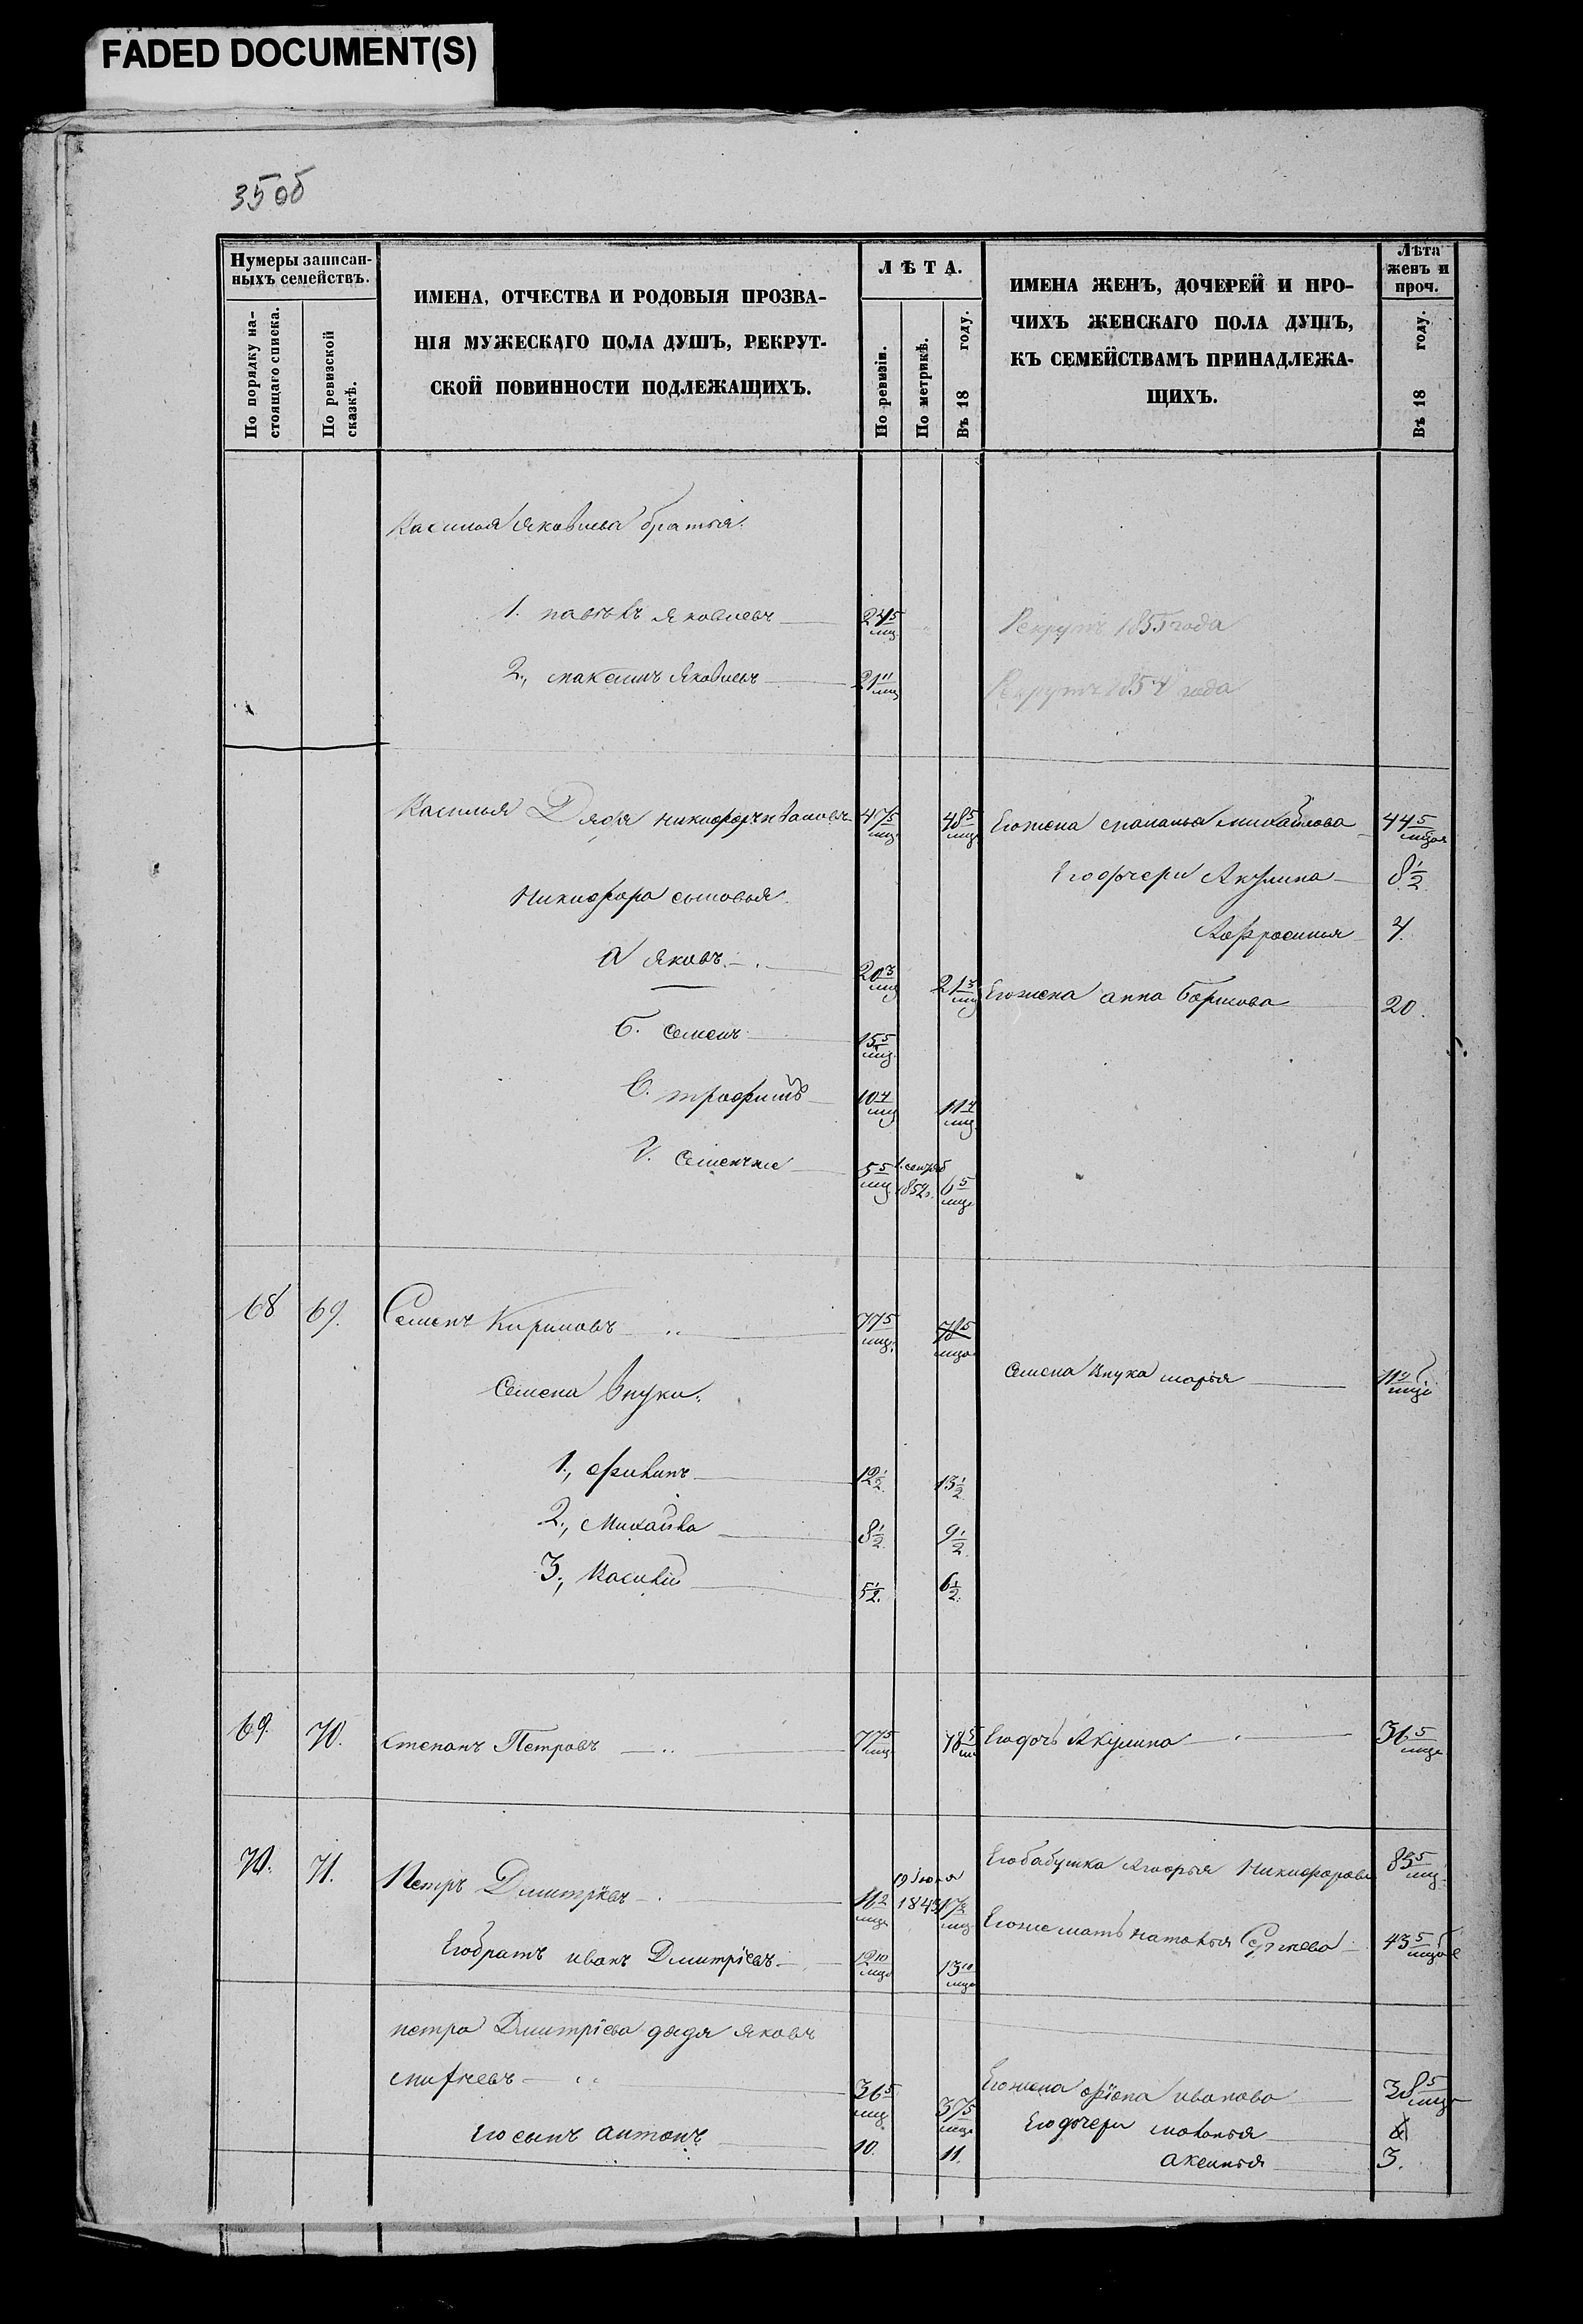 FADED DOCUMENT(S)
35об
Нумеры записан-
ныхъ семействъ.
По порядку на-
стоящаго списка.
По ревизской
сказкѣ.
ИМЕНА, ОТЧЕСТВА И РОДОВЫЯ ПРОЗВА-
НІЯ МУЖЕСКАГО ПОЛА ДУШЪ, РЕКРУТ-
СКОЙ ПОВИННОСТИ ПОДЛЕЖАЩИХЪ.
ЛѢТА.
По ревизіи.
По метрикѣ.
Въ 18 году.
ИМЕНА ЖЕНЪ, ДОЧЕРЕЙ И ПРО-
ЧИХЪ ЖЕНСКАГО ПОЛА ДУШЪ,
КЪ СЕМЕЙСТВАМЪ ПРИНАДЛЕЖА-
ЩИХЪ.
Лѣта
женъ и
проч.
Въ 18 году.
Василья Яковлева братья.
1. павѣлъ Яковлевъ 24 5/мц Рекрутъ 1855 года
2., максимъ Яковлевъ 21 11/мц Рекрутъ 1854 года
Василья Дядя никифоръ Ивановъ 47 5/мц 48 5/мц Его жена маланья михайлова 44 5/мцов
Его дочери Акулина 8 1/2
Никифора сыновья.
Афросинья 4.
а Яковъ 20 3/мц 21 3/мц Его жена анна борисова 20.
б. семенъ 15 5/мц
в. трофимъ 10 4/мц 11 4/мц
г. Семенъже 5 5/мц 1. сентяб 1852. 6 5/мц
68 69. Семенъ Кириловъ 77 5/мц. 78 5/мцов
Семена Внука марья
Семена внуки.
1., филипъ 12 1/2 13 1/2
2., Михайла 8 1/2 9 1/2
3., Василій 5 1/2. 6 1/2
69. 70. Степанъ Петровъ 77 5/мц 78 5/мц Его дочь Акулина 36 5/мцв
70. 71. Петръ Дмитріевъ 16 2/мцв 19 Іюня 17 2/мц Его бабушка Никифорова 83 5/мц.
Его же мать наталья Сергѣева 43 5/мцов
Его братъ иванъ Дмитріевъ 12 10/мцв 13 10/мцв
петра Дмитріева дядя яковъ
36 5/мц 37 5/мцв Его жена фіона иванова 38 5/мцв
Его сынъ антонъ 10. 11. Его дочери маланья
аксинья 3.